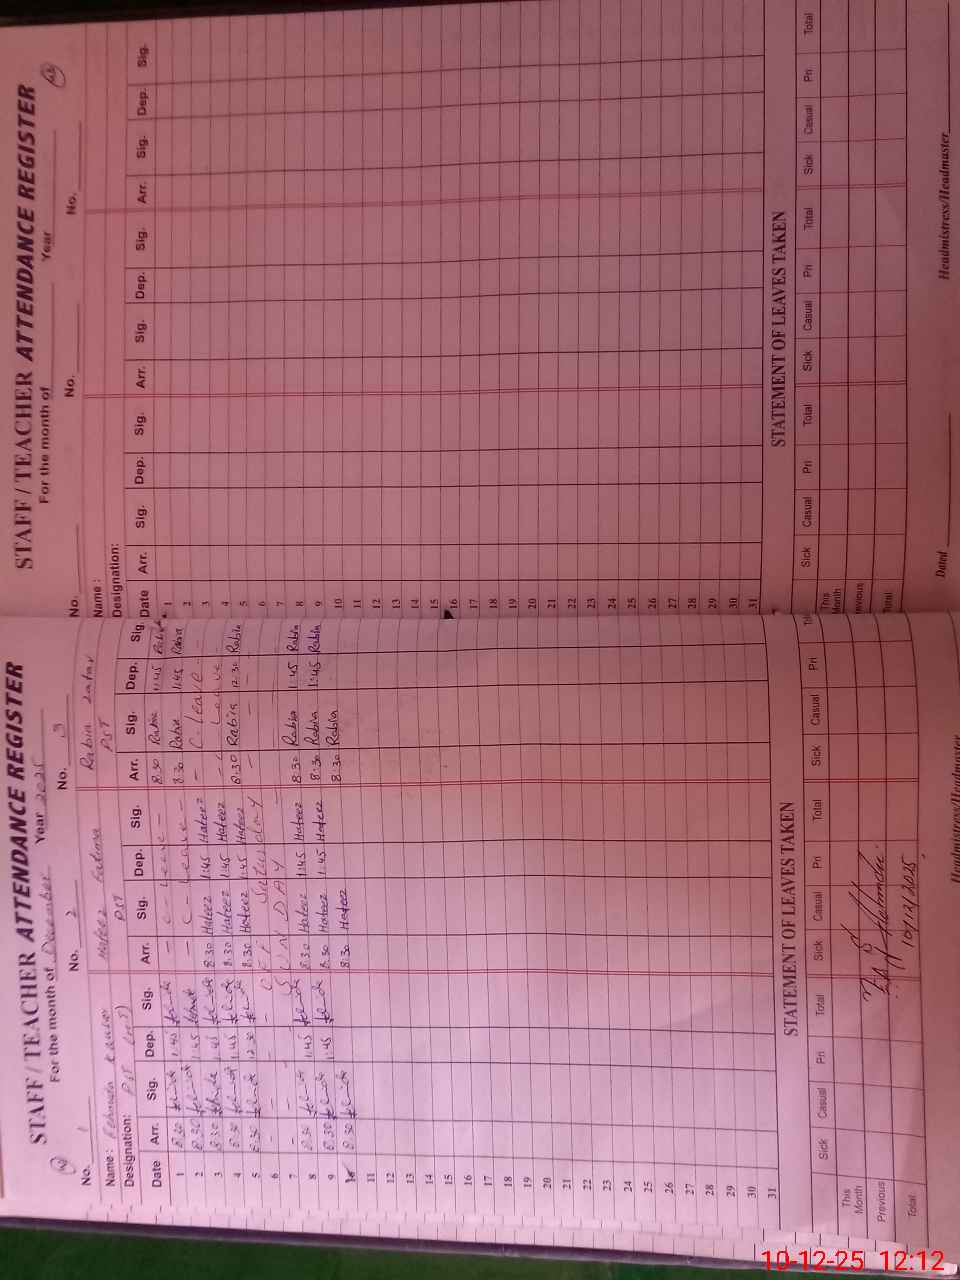 STAFF / TEACHER ATTENDANCE REGISTER
For the month of December Year 2025
No. 1 No. 2 No. 3
Name : Rehana Kausar Hafeez Fatima Rabia Zafar
Designation: PST PST PST
Date Arr. Sig. Dep. Sig. Arr. Sig. Dep. Sig. Arr. Sig. Dep. Sig.
1 8:30 1:45 - C - Leave - 8:30 Rabia 1:45 Rabia
2 8:30 1:45 - C - Leave - 8:30 Rabia 1:45 Rabia
3 8:30 1:45 8:30 Hafeez 1:45 Hafeez - C. Leave -
4 8:30 1:45 8:30 Hafeez 1:45 Hafeez - Leave -
5 8:30 12:30 8:30 Hafeez 1:45 Hafeez 8:30 Rabia 12:30 Rabia
6 - - - OFF Saturday - - -
7 - - - SUNDAY -
8 8:30 1:45 8:30 Hafeez 1:45 Hafeez 8:30 Rabia 1:45 Rabia
9 8:30 1:45 8:30 Hafeez 1:45 Hafeez 8:30 Rabia 1:45 Rabia
10 8:30 8:30 Hafeez 8:30 Rabia
11
12
13
14
15
16
17
18
19
20
21
22
23
24
25
26
27
28
29
30
31
STATEMENT OF LEAVES TAKEN
Sick Casual Pri Total Sick Casual Pri Total Sick Casual Pri
This Month
Previous
Total
10/12/2025
Headmistress/Headmaster
STAFF / TEACHER ATTENDANCE REGISTER
For the month of Year
No. No. No.
Name :
Designation:
Date Arr. Sig. Dep. Sig. Arr. Sig. Dep. Sig. Arr. Sig. Dep. Sig.
1
2
3
4
5
6
7
8
9
10
11
12
13
14
15
16
17
18
19
20
21
22
23
24
25
26
27
28
29
30
31
STATEMENT OF LEAVES TAKEN
Sick Casual Pri Total Sick Casual Pri Total Sick Casual Pri Total
This Month
Previous
Total
Dated Headmistress/Headmaster
10-12-25 12:12